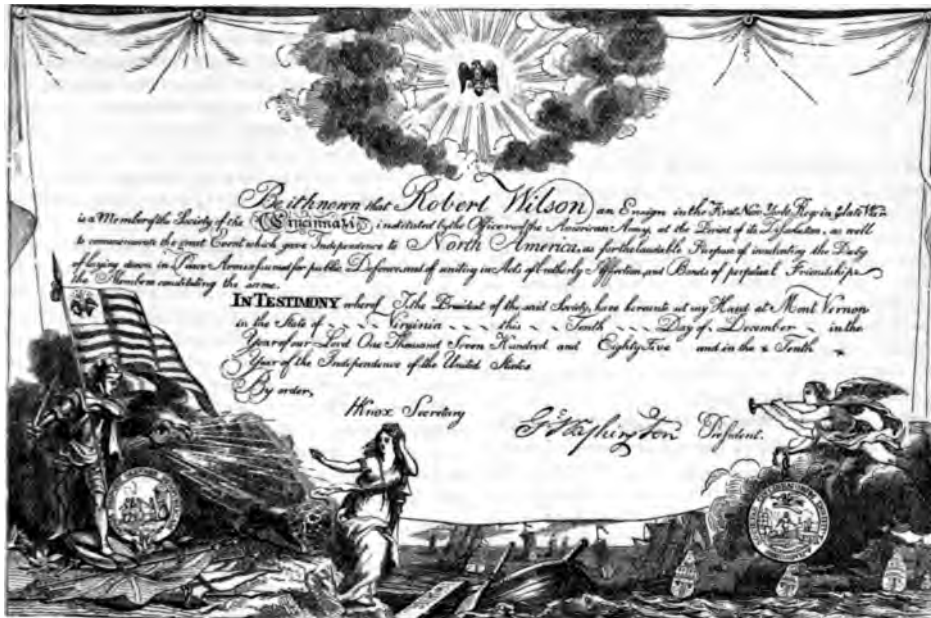 Be it known that Robert Wilson an Ensign in the First New York Reg in late War
is a Member of the Society of the Cincinnati instituted by the Officers of the American Army, at the Period of its Dissolution, as well
to commemorate the great Event which gave Independence to North America, as for the laudable Purpose of inculcating the Duty
of laying down in Peace Arms assumed for public Defence, and of uniting in Acts of brotherly Affection, and Bonds of perpetual Friendship
the Members constituting the same.
IN TESTIMONY whereof I, the President of the said Society, have hereunto set my Hand at Mont Vernon
in the State of Virginia this Tenth Day of December in the
Year of our Lord One Thousand Seven Hundred and Eighty Five and in the Tenth
Year of the Independence of the United States
By order,
HKnox Secretary
Go Washington President.